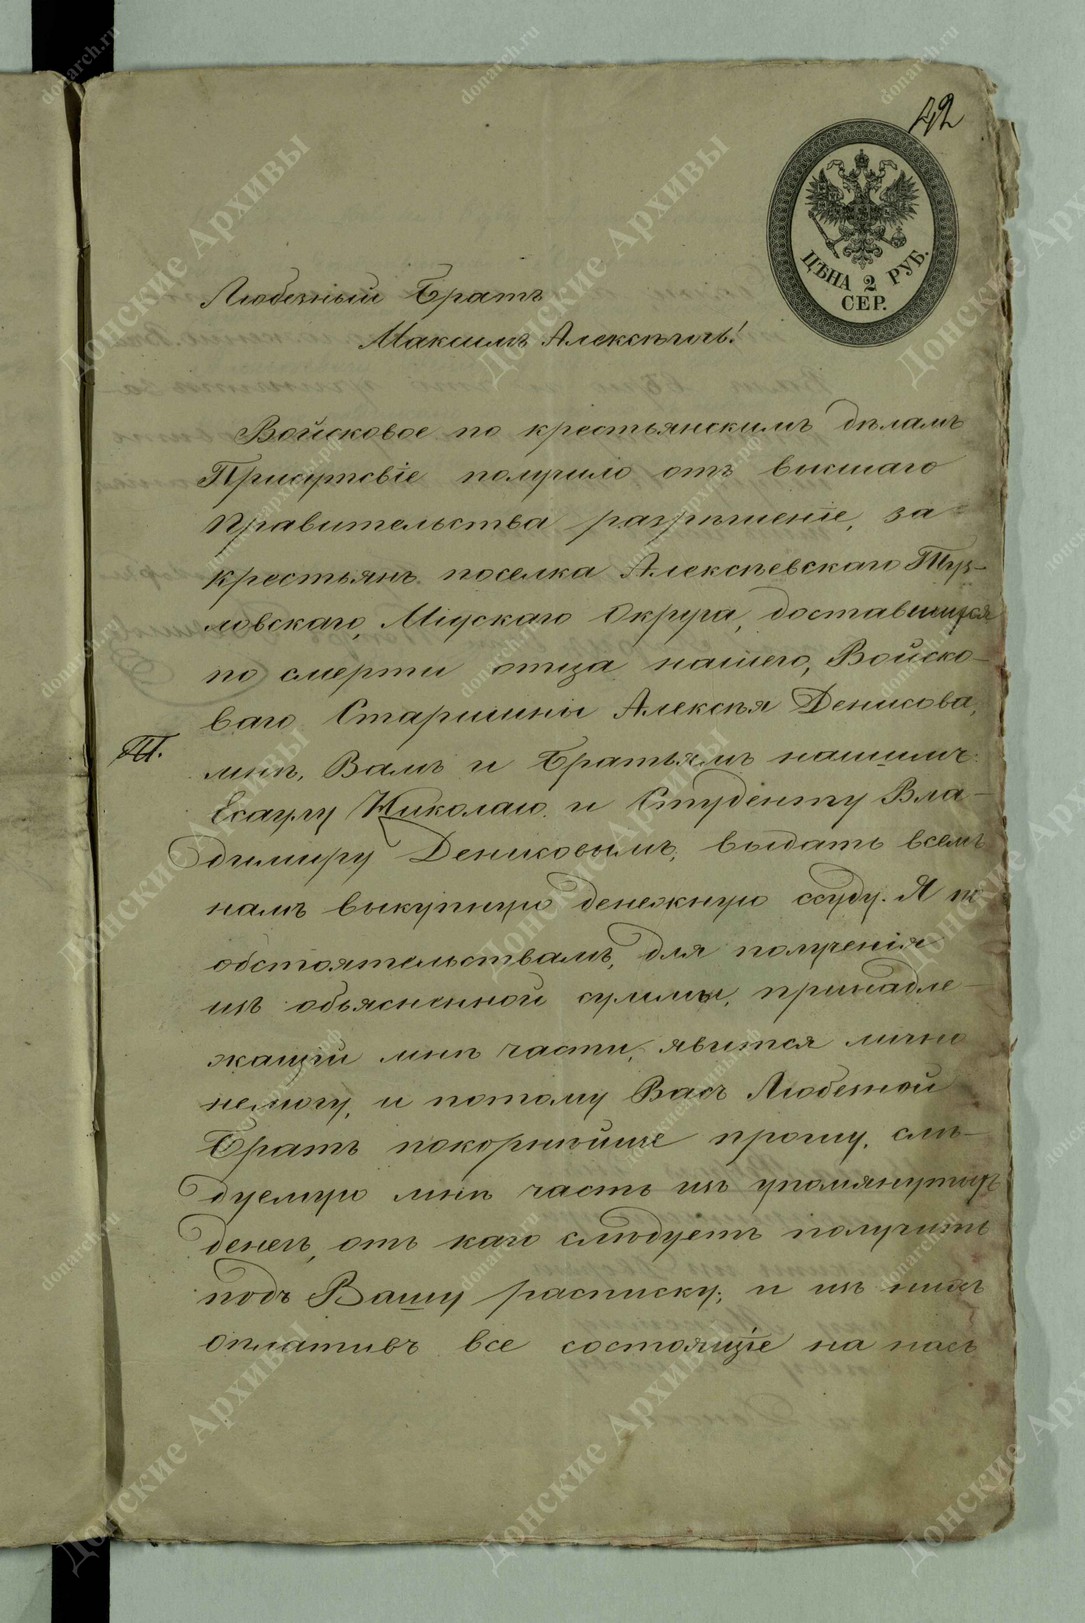 42
ЦѢНА 2 РУБ.
СЕР.
Любезный Братъ
Максимъ Алексѣичъ!
Войсковое по крестьянскимъ дѣламъ
Присутсвіе получило отъ высшаго
Правительства разрѣшеніе, за
крестьянъ поселка Алексѣевскаго Туз-
ловскаго, Міускаго Округа, доставшихся
по смерти отца нашего, Войско-
ваго Старшины Алексѣя Денисова,
мнѣ, Вамъ и Братьямъ нашимъ:
Есаулу Николаю и Студенту Вла-
димиру Денисовымъ, выдать всемъ
намъ выкупную денежную ссуду. Я по
обстоятельствамъ, для полученія
изъ объясненной суммы, принадле-
жащей мнѣ части, явится лично
немогу, и потому Васъ Любезной
Братъ покорнѣйше прошу, слѣ-
дуемую мнѣ часть изъ упомянутыхъ
денегъ, отъ каго слѣдуетъ получить
подъ Вашу расписку; и изъ нихъ
оплативъ все состоящіе на насъ